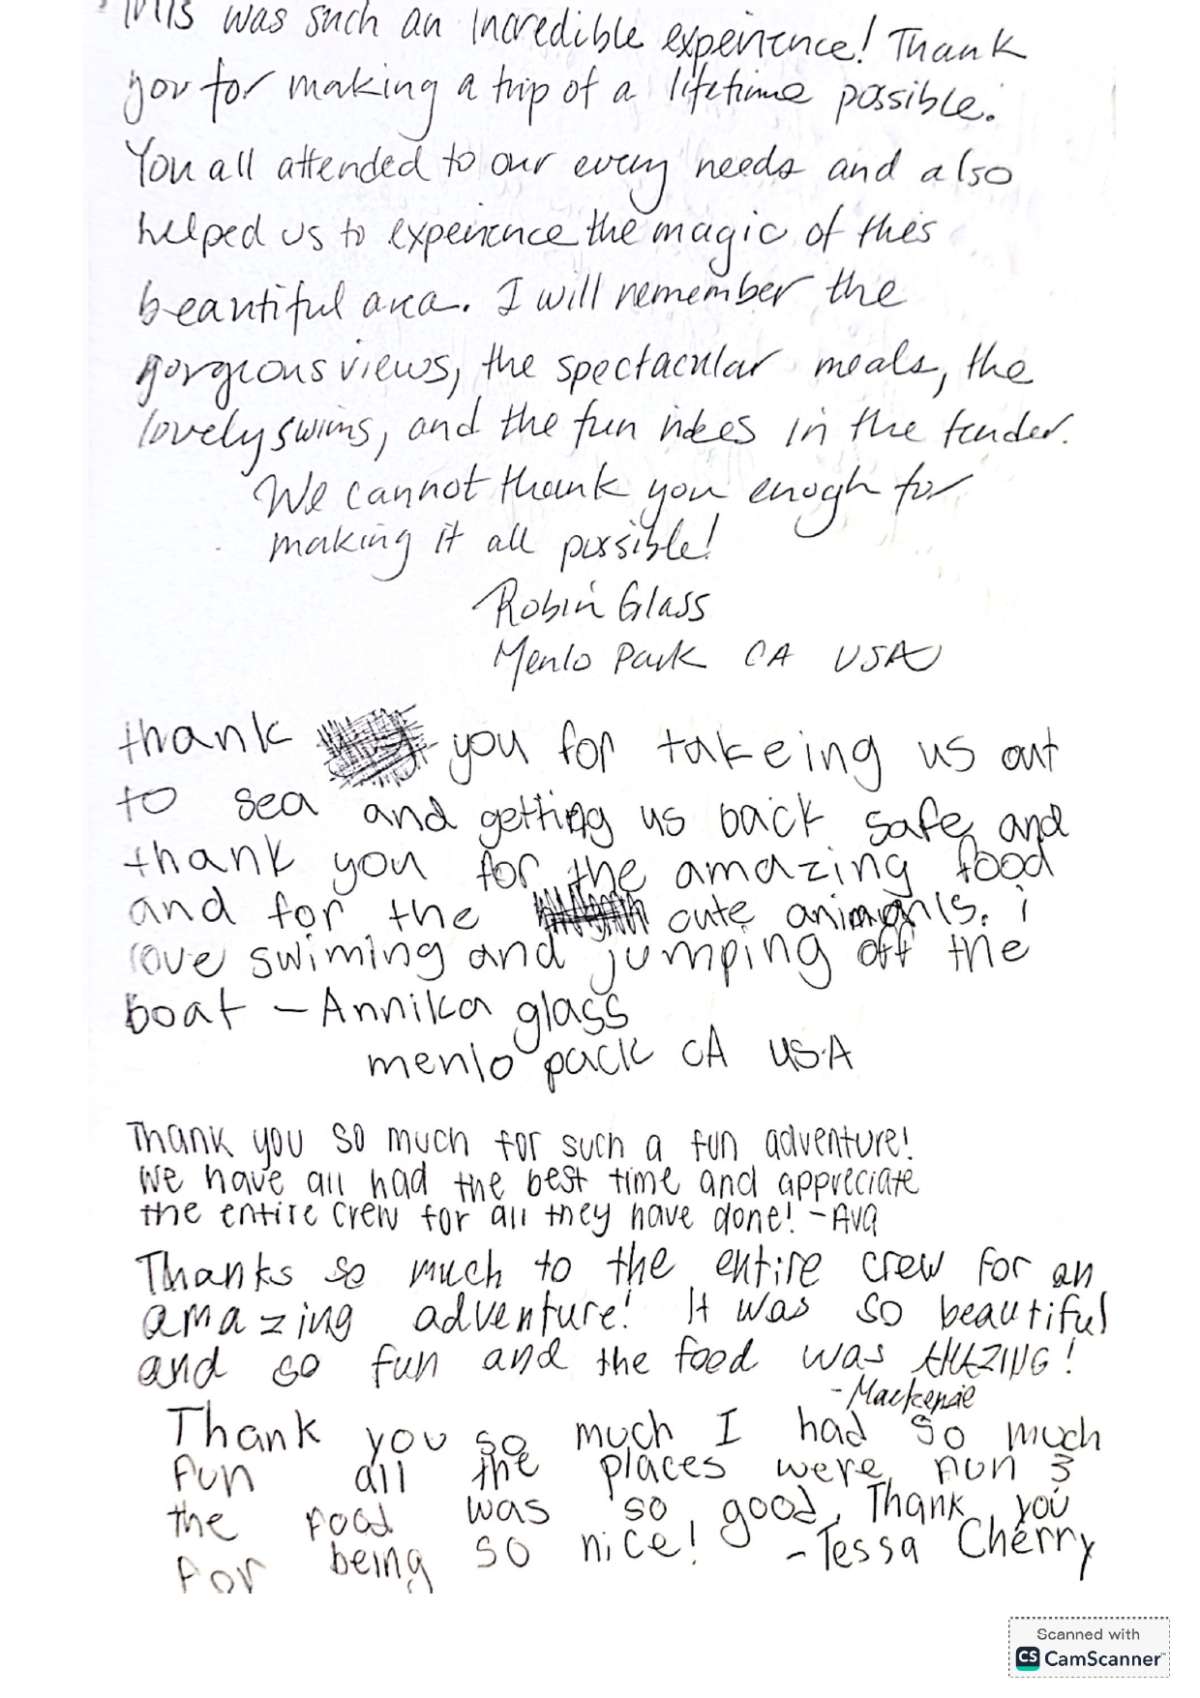 This was such an incredible experience! Thank
you for making a trip of a lifetime possible.
You all attended to our every needs and also
helped us to experience the magic of this
beautiful area. I will remember the
gorgeous views, the spectacular meals, the
lovely swims, and the fun rides in the tender.
We cannot thank you enogh for
making it all possible!
Robin Glass
Menlo Park CA USA
thank you for takeing us out
to sea and getting us back safe and
thank you for the amazing food
and for the cute animals. i
love swiming and jumping off the
boat - Annika glass
menlo pack CA USA
Thank you so much for such a fun adventure!
We have all had the best time and appreciate
the entire crew for all they have done! - Ava
Thanks so much to the entire crew for an
amazing adventure! It was so beautiful
and so fun and the food was AMAZING!
- Mackenzie
Thank you so much I had so much
fun all the places were fun &
the food was so good, Thank you
for being so nice! - Tessa Cherry
Scanned with
CS CamScanner